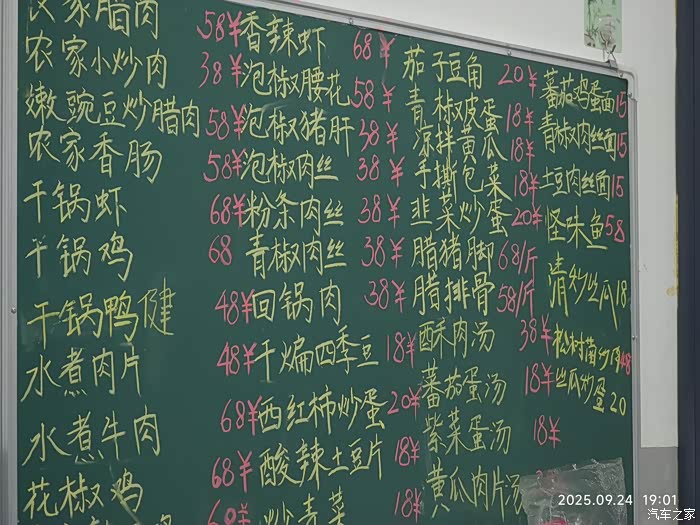 农家腊肉 58¥
农家小炒肉 38¥
嫩豌豆炒腊肉 58¥
农家香肠 58¥
干锅虾 68¥
干锅鸡 68
干锅鸭健 48¥
水煮肉片 48¥
水煮牛肉 68¥
花椒鸡 68¥
香辣虾 68¥
泡椒腰花 58¥
泡椒猪肝 38¥
泡椒肉丝 38¥
粉条肉丝 38¥
青椒肉丝 38¥
回锅肉 38¥
干煸四季豆 18¥
西红柿炒蛋 20¥
酸辣土豆片 18¥
炒青菜 18¥
茄子豆角 20¥
青椒皮蛋 18¥
凉拌黄瓜 18¥
手撕包菜 18¥
韭菜炒蛋 20¥
腊猪脚 68/斤
腊排骨 58/斤
酥肉汤 38¥
蕃茄蛋汤 18¥
紫菜蛋汤 18¥
黄瓜肉片汤
蕃茄鸡蛋面 15
青椒肉丝面 15
土豆肉丝面 15
怪味鱼 58
清炒丝瓜 18
松树菌炒肉
丝瓜炒蛋 20
2025.09.24 19:01
汽车之家